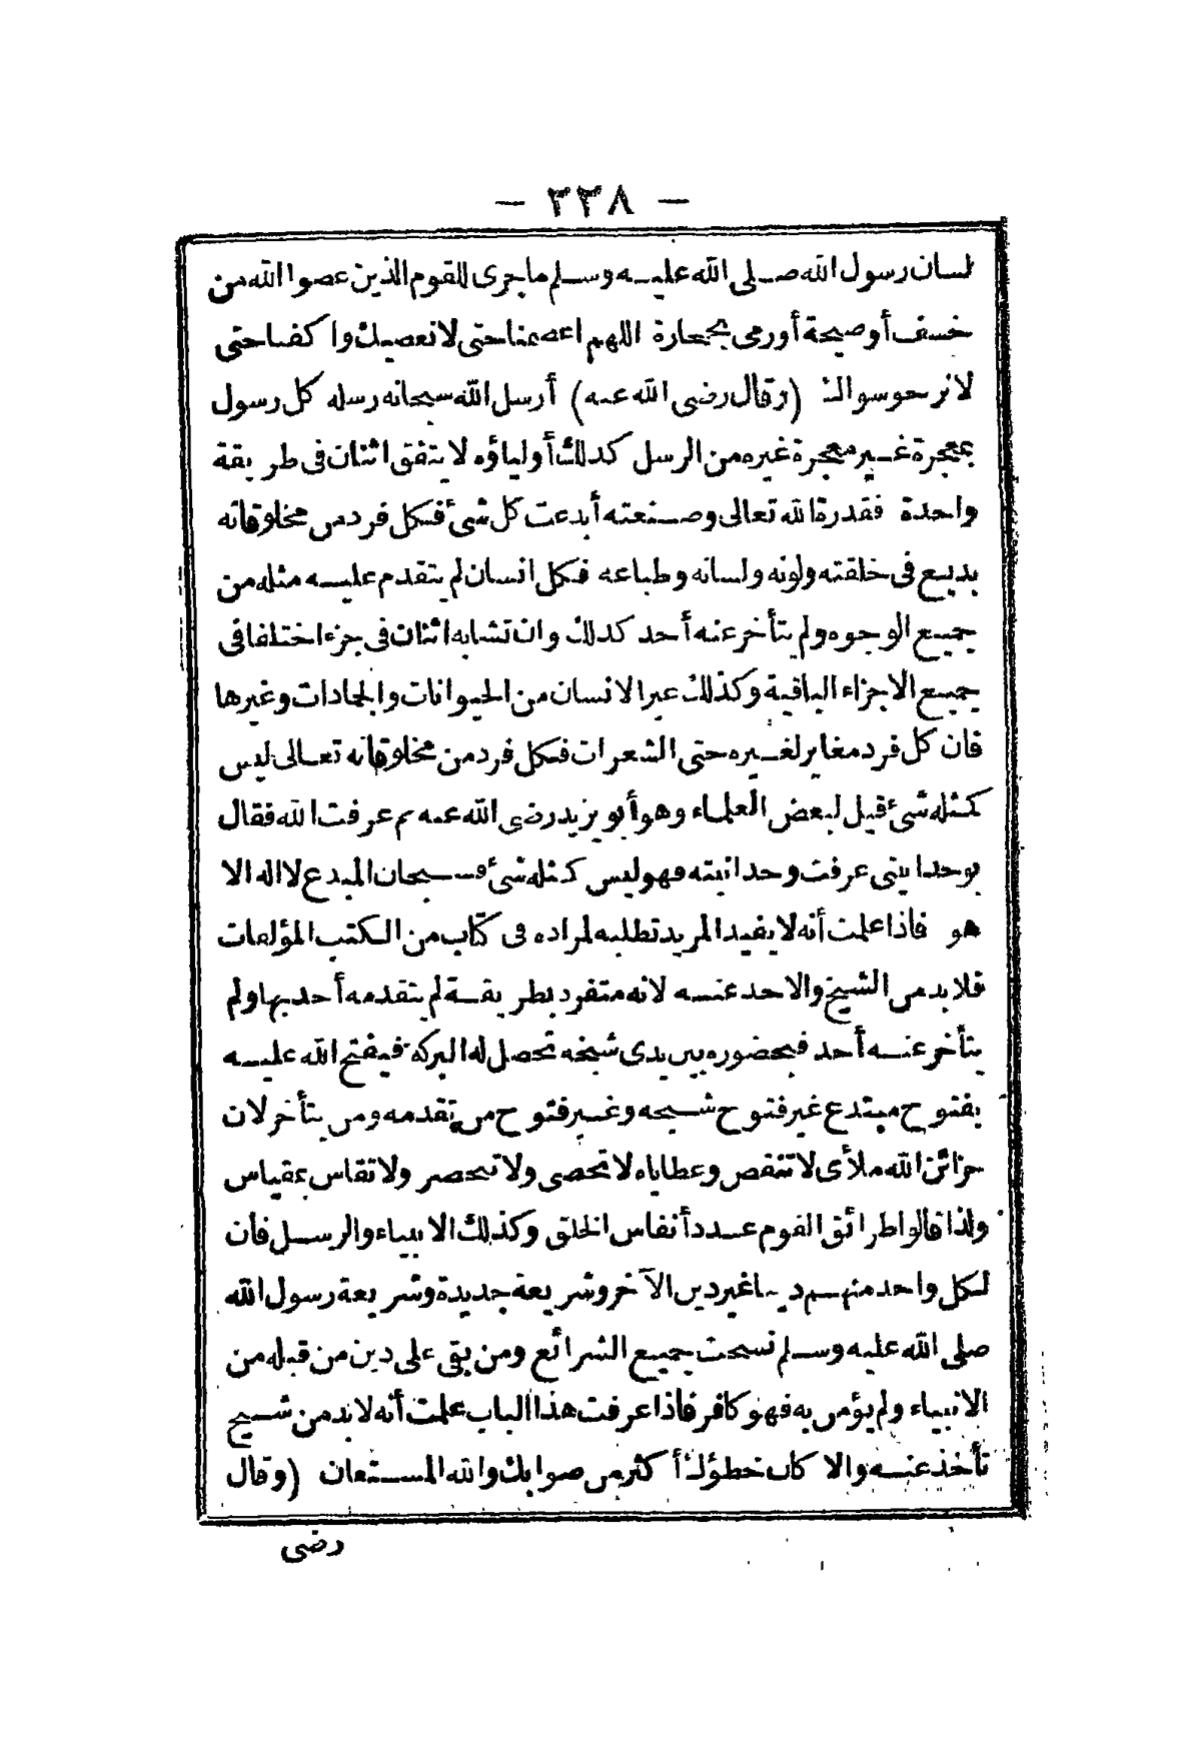 — ٣٣٨ —
لسان رسول الله صلى الله عليه وسلم ما جرى للقوم الذين عصوا الله من
خسف أو صيحة أو رمى بحجارة اللهم اعصمنا حتى لا نعصيك واكفنا حتى
لا نرجو سواك (وقال رضى الله عنه) أرسل الله سبحانه رسله كل رسول
بمعجزة غير معجزة غيره من الرسل كذلك أولياؤه لا يتفق اثنان فى طريقة
واحدة فقدرة الله تعالى وصنعته أبدعت كل شئ فكل فرد من مخلوقاته
بديع فى خلقته ولونه ولسانه وطباعه فكل انسان لم يتقدم عليه مثله من
جميع الوجوه ولم يتأخر عنه أحد كذلك وان تشابه اثنان فى جزء اختلفا فى
جميع الاجزاء الباقية وكذلك غير الانسان من الحيوانات والجمادات وغيرها
فان كل فرد مغاير لغيره حتى الشعرات فكل فرد من مخلوقاته تعالى ليس
كمثله شئ قيل لبعض العلماء وهو أبو يزيد رضى الله عنه بم عرفت الله فقال
بوحدايتى عرفت وحدانيته فهو ليس كمثله شئ فسبحان المبدع لا اله الا
هو فاذا علمت أنه لا يفيد المريد تطلبه لمراده فى كتاب من الكتب المؤلفات
فلا بد من الشيخ والاخذ عنه لانه متفرد بطريقة لم يتقدمه أحد بها ولم
يتأخر عنه أحد فبحضوره بين يدى شيخه تحصل له البركة فيفتح الله عليه
بفتوح مبتدع غير فتوح شيخه وغير فتوح من تقدمه ومن يتأخر لان
خزائن الله ملأى لا تنقص وعطاياه لا تحصى ولا تنحصر ولا تقاس بمقياس
ولذا قالوا طرائق القوم عدد أنفاس الخلق وكذلك الانبياء والرسل فان
لكل واحد منهم دينا غير دين الآخر وشريعة جديدة وشريعة رسول الله
صلى الله عليه وسلم نسخت جميع الشرائع ومن بقى على دين من قبله من
الانبياء ولم يؤمن به فهو كافر فاذا عرفت هذا الباب علمت أنه لا بد من شيخ
تأخذ عنه والا كان خطؤك أكثر من صوابك والله المستعان (وقال
رضى